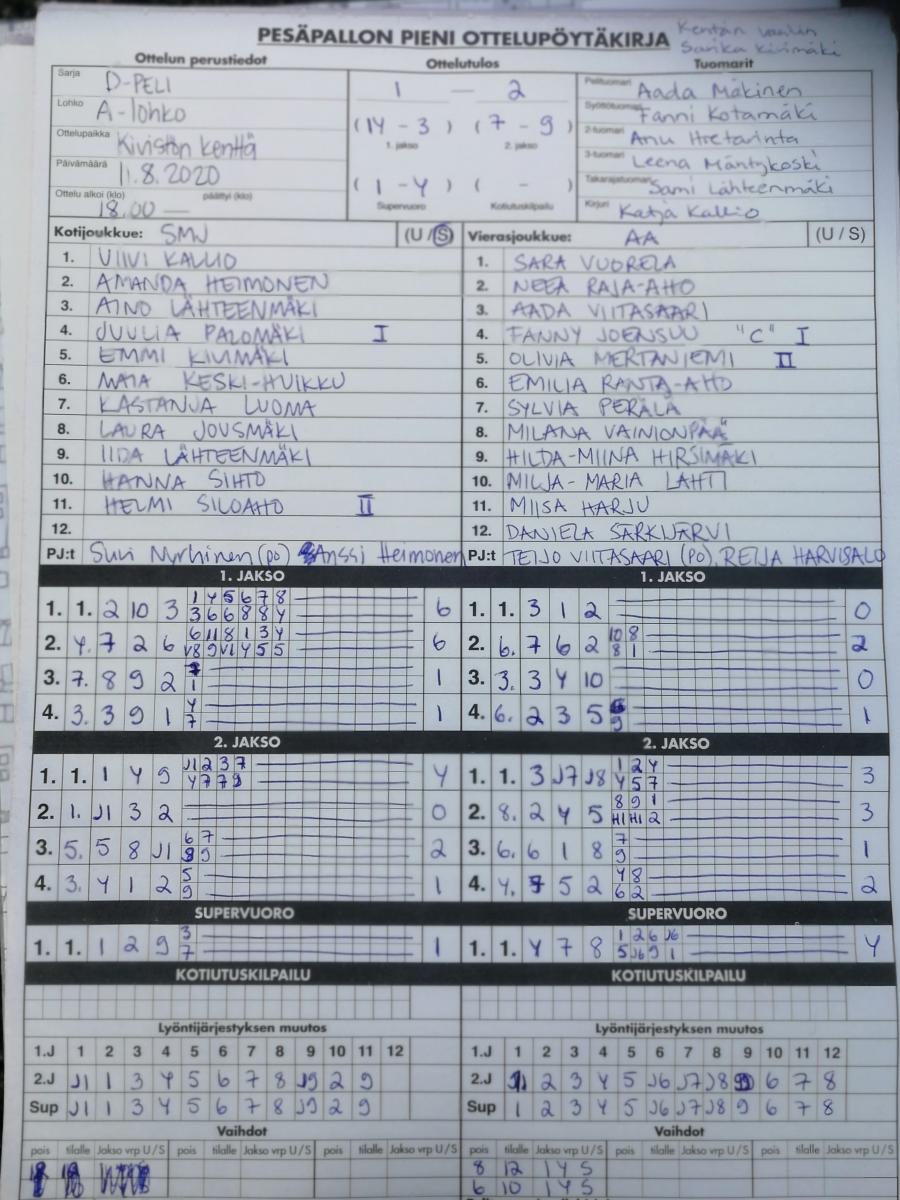 PESÄPALLON PIENI OTTELUPÖYTÄKIRJA
Kentän
Sarika Kivimäki
Ottelun perustiedot Ottelutulos Tuomarit
Sarja D-PELI
Lohko A-lohko
Ottelupaikka Kivistön kenttä
Päivämäärä 11.8.2020
Ottelu alkoi (klo) 18.00 — päättyi (klo)
1 — 2
(14 - 3) (7 - 9)
1. jakso 2. jakso
(1 - 4) ( - )
Supervuoro Kotiutuskilpailu
Pelituomari Aada Mäkinen
Syöttötuomari Fanni Kotamäki
2-tuomari Anu Hietarinta
3-tuomari Leena Mäntykoski
Takarajatuomari Sami Lähteenmäki
Kirjuri Katja Kallio
Kotijoukkue: SMJ (U / S) Vierasjoukkue: AA (U / S)
1. VIIVI KALLIO 1. SARA VUORELA
2. AMANDA HEIMONEN 2. NEEA RAJA-AHO
3. AINO LÄHTEENMÄKI 3. AADA VIITASAARI
4. JUULIA PALOMÄKI I 4. FANNY JOENSUU "C" I
5. EMMI KIVIMÄKI 5. OLIVIA MERTANIEMI II
6. MAIA KESKI-HUIKKU 6. EMILIA RANTA-AHO
7. KASTANJA LUOMA 7. SYLVIA PERÄLÄ
8. LAURA JOUSMÄKI 8. MILANA VAINIONPÄÄ
9. IIDA LÄHTEENMÄKI 9. HILDA-MIINA HIRSIMÄKI
10. HANNA SIHTO 10. MILJA-MARIA LAHTI
11. HELMI SILOAHO II 11. MIISA HARJU
12. 12. DANIELA SARKIJÄRVI
PJ:t Suvi Nyrhinen (po) Anssi Heimonen PJ:t TEIJO VIITASAARI (PO), REIJA HARVISALO
1. JAKSO 1. JAKSO
1 4 5 6 7 8
1. 1. 2 10 3 6 1. 1. 3 1 2 0
3 6 6 8 8 4
6 11 8 1 3 4 10 8
2. 4. 7 2 6 6 2. 6. 7 6 2 2
V8 9 V1 4 5 5 8 1
3. 7. 8 9 2 1 1 3. 3. 3 4 10 0
4
4. 3. 3 9 1 1 4. 6. 2 3 5 9 1
7
2. JAKSO 2. JAKSO
J1 2 3 7 1 2 4
1. 1. 1 4 9 4 1. 1. 3 J7 J8 3
4 7 7 9 4 5 7
8 9 1
2. 1. J1 3 2 0 2. 8. 2 4 5 3
H1 H1 2
6 7 7
3. 5. 5 8 J1 2 3. 6. 6 1 8 1
9 9
5 4 8
4. 3. 4 1 2 1 4. 4. 5 2 2
9 6 2
SUPERVUORO SUPERVUORO
3 1 2 6 J6
1. 1. 1 2 9 1 1. 1. 4 7 8 4
7 5 J6 9 1
KOTIUTUSKILPAILU KOTIUTUSKILPAILU
Lyöntijärjestyksen muutos Lyöntijärjestyksen muutos
1.J 1 2 3 4 5 6 7 8 9 10 11 12 1.J 1 2 3 4 5 6 7 8 9 10 11 12
2.J J1 1 3 4 5 6 7 8 J9 2 9 2.J 2 3 4 5 J6 J7 J8 6 7 8
Sup J1 1 3 4 5 6 7 8 J9 2 9 Sup 1 2 3 4 5 J6 J7 J8 9 6 7 8
Vaihdot Vaihdot
pois tilalle Jakso vrp U / S pois tilalle Jakso vrp U / S pois tilalle Jakso vrp U / S pois tilalle Jakso vrp U / S pois tilalle Jakso vrp U / S pois tilalle Jakso vrp U / S
8 12 1 4 S
6 10 1 4 S